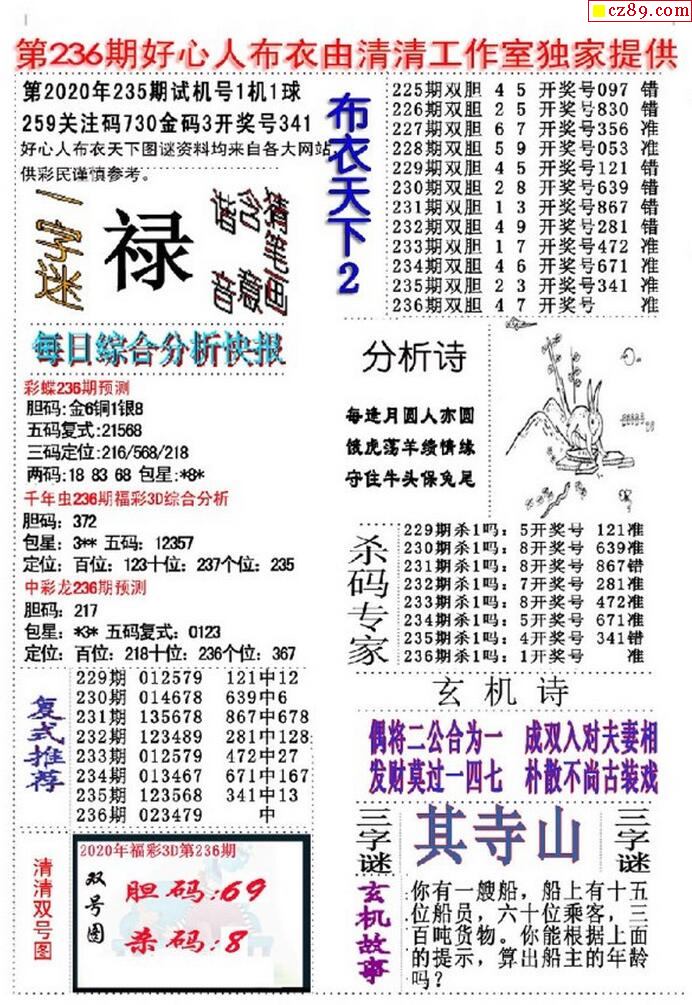 cz89.com
第236期好心人布衣由清清工作室独家提供
第2020年235期试机号1机1球
259关注码730金码3开奖号341
好心人布衣天下图谜资料均来自各大网站,
供彩民谨慎参考。
一字迷
禄
谐音
含意
猜笔画
布衣天下2
225期双胆 4 5 开奖号097 错
226期双胆 2 5 开奖号830 错
227期双胆 6 7 开奖号356 准
228期双胆 5 9 开奖号053 准
229期双胆 4 5 开奖号121 错
230期双胆 2 8 开奖号639 错
231期双胆 1 3 开奖号867 错
232期双胆 4 9 开奖号281 错
233期双胆 1 7 开奖号472 准
234期双胆 4 6 开奖号671 准
235期双胆 2 3 开奖号341 准
236期双胆 4 7 开奖号 准
每日综合分析快报
彩蝶236期预测
胆码:金6铜1银8
五码复式:21568
三码定位:216/568/218
两码:18 83 68 包星:*8*
千年虫236期福彩3D综合分析
胆码: 372
包星: 3** 五码: 12357
定位: 百位: 123十位: 237个位: 235
中彩龙236期预测
胆码: 217
包星: *3* 五码复式: 0123
定位: 百位: 218十位: 236个位: 367
分析诗
每逢月圆人亦圆
饿虎荡羊续情缘
守住牛头保兔尾
杀码专家
229期杀1吗: 5开奖号 121准
230期杀1吗: 8开奖号 639准
231期杀1吗: 8开奖号 867错
232期杀1吗: 7开奖号 281准
233期杀1吗: 8开奖号 472准
234期杀1吗: 5开奖号 671准
235期杀1吗: 4开奖号 341错
236期杀1吗: 1开奖号 准
复式推荐
229期 012579 121中12
230期 014678 639中6
231期 135678 867中678
232期 123489 281中128
233期 012579 472中27
234期 013467 671中167
235期 123568 341中13
236期 023479 中
玄机诗
偶将二公合为一 成双入对夫妻相
发财莫过一四七 朴散不尚古装戏
三字谜
其寺山
三字谜
清清双号图
2020年福彩3D第236期
双号图
胆码:69
杀码:8
玄机故事
你有一艘船，船上有十五
位船员，六十位乘客，三
百吨货物。你能根据上面
的提示，算出船主的年龄
吗？